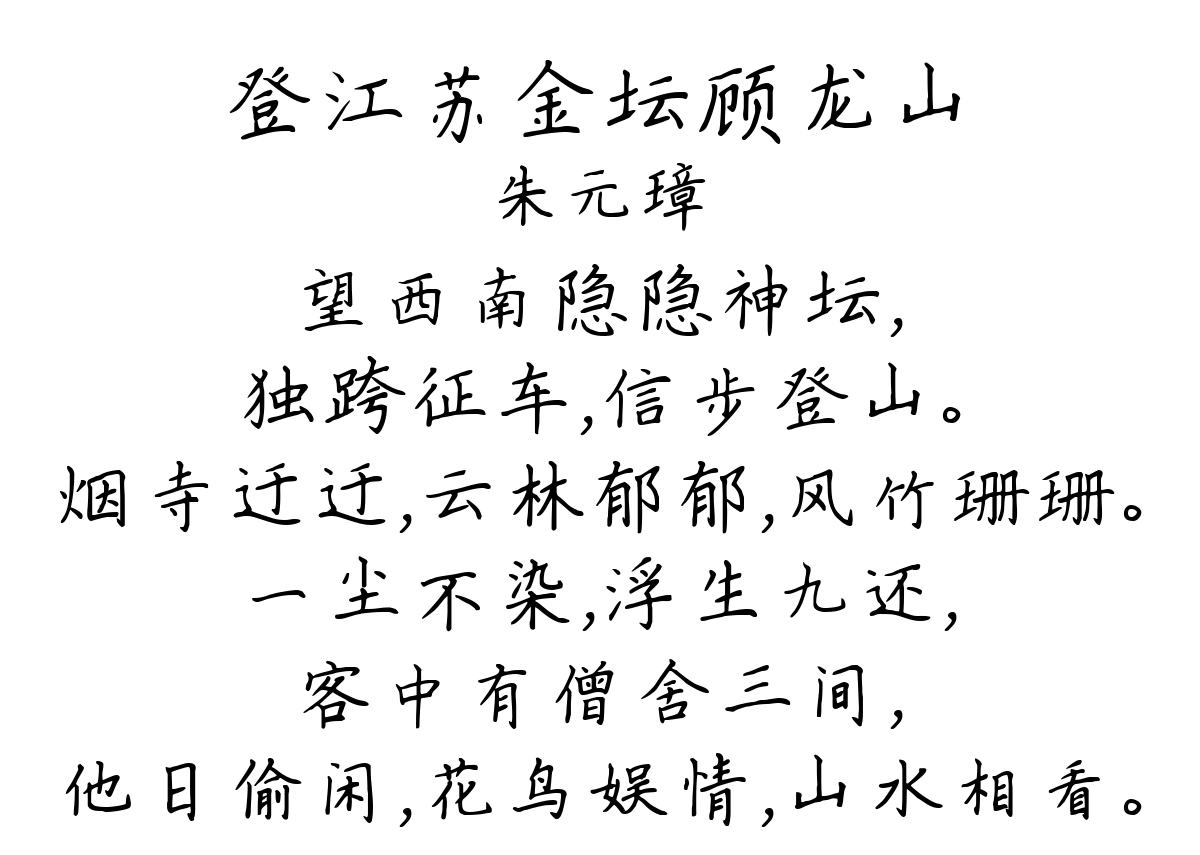 登江苏金坛顾龙山
朱元璋
望西南隐隐神坛,
独跨征车,信步登山。
烟寺迂迂,云林郁郁,风竹珊珊。
一尘不染,浮生九还,
客中有僧舍三间,
他日偷闲,花鸟娱情,山水相看。